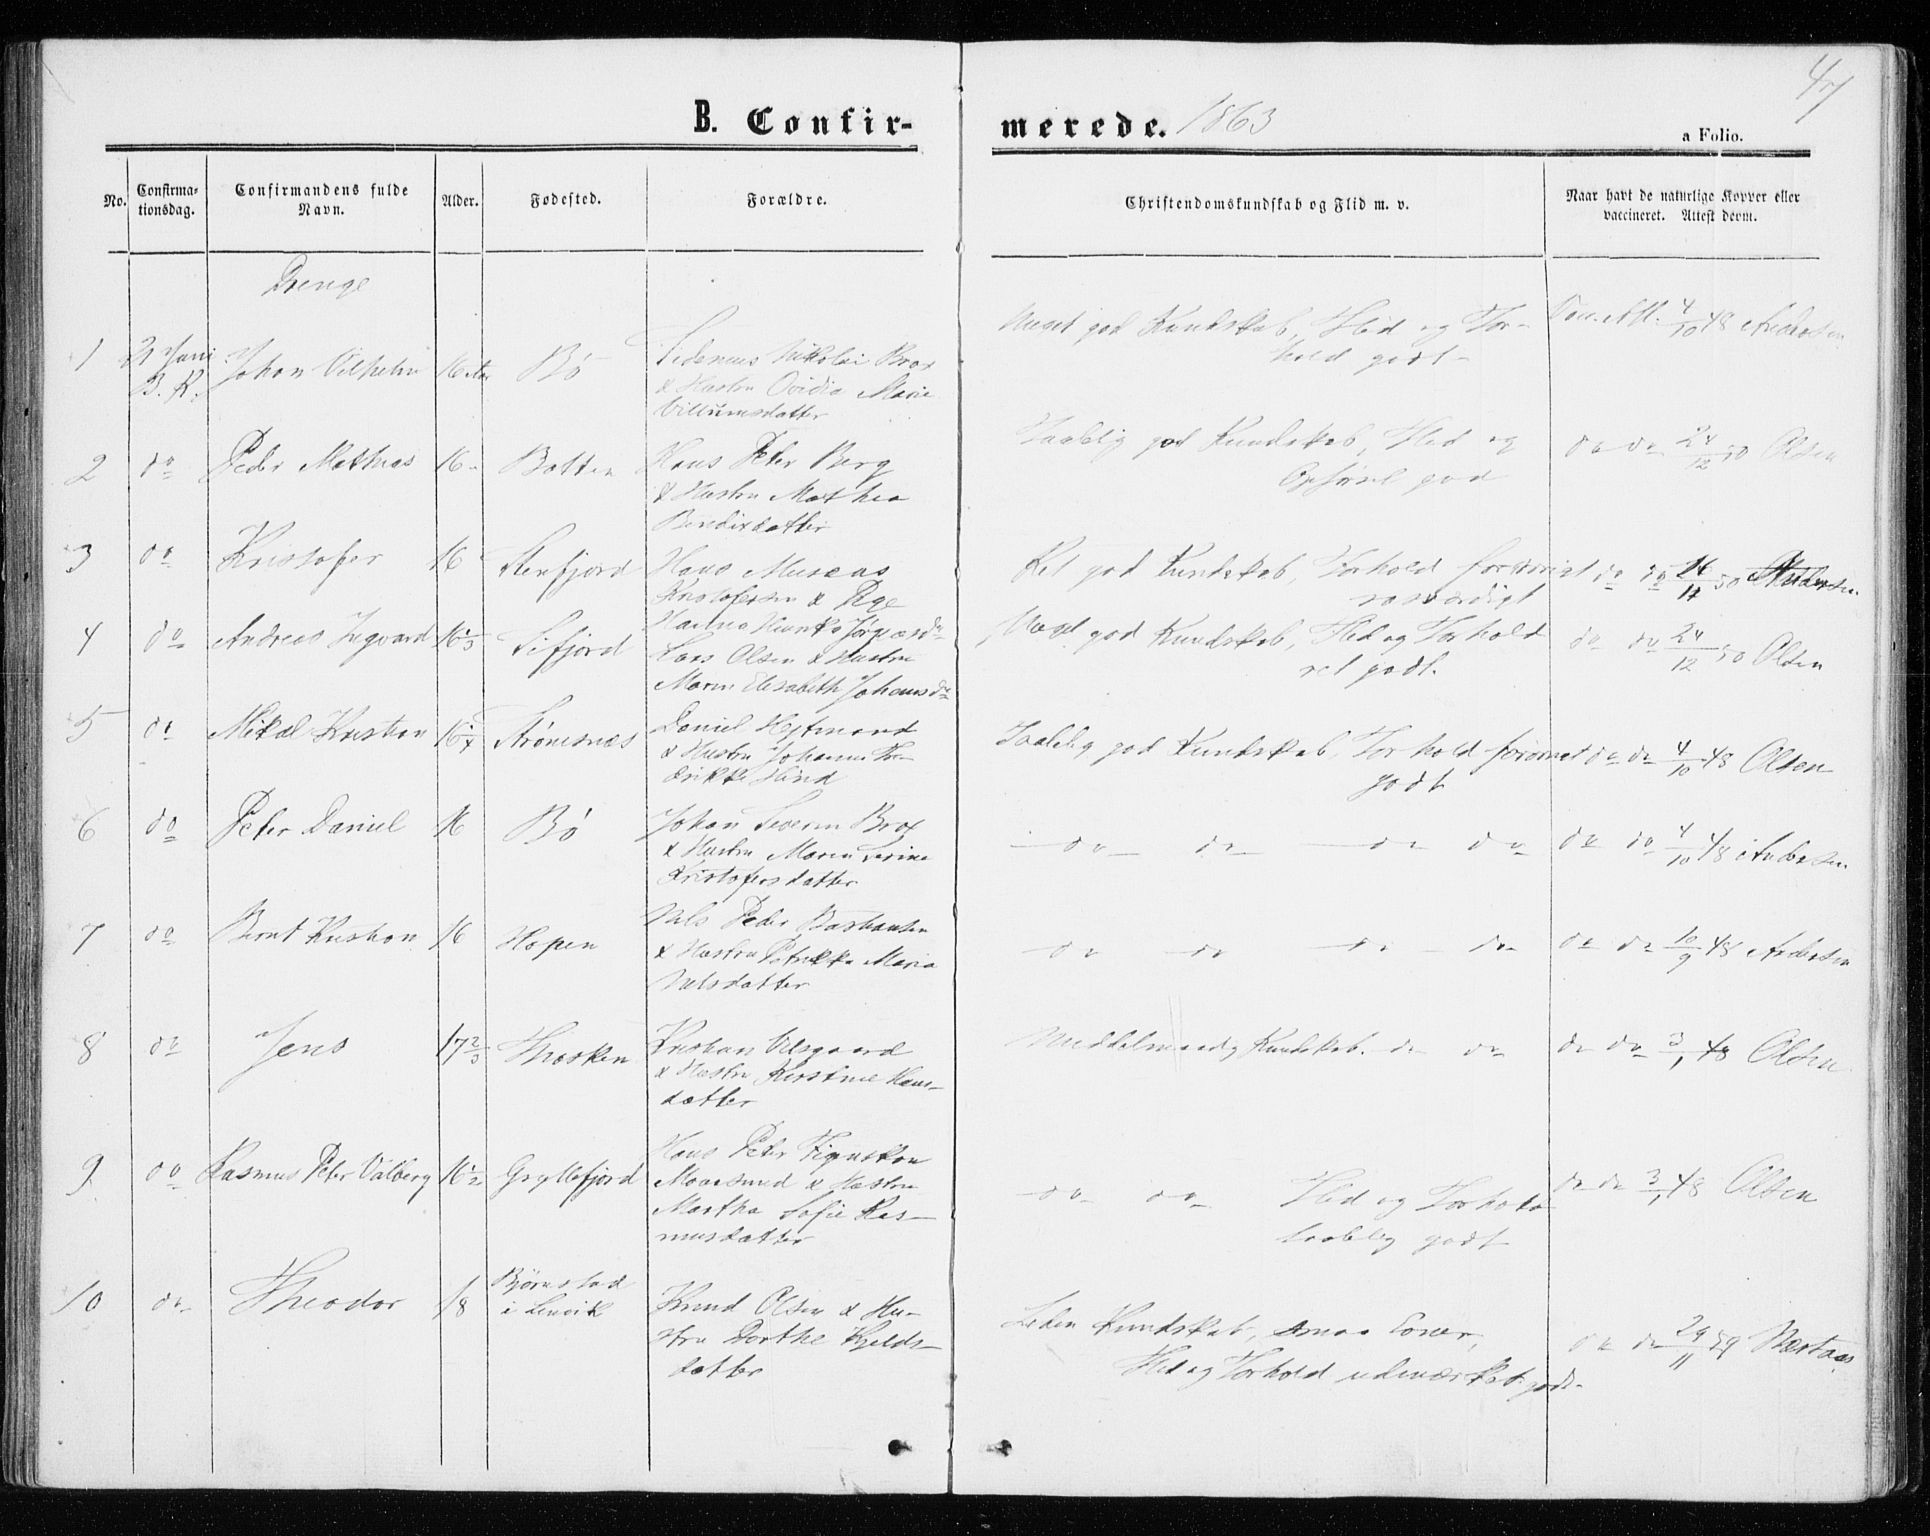 47
B. Confirmerede. 1863
a Folio.
No.
Confirma-
tionsdag.
Confirmandens fulde
Navn.
Alder.
Fødested.
Forældre.
Christendomskundskab og Flid m. v.
Naar havt de naturlige Kopper eller
vaccineret. Attest derm.
Drenge
1
21 Juni
B. K.
Johan Vilhelm
16
Bø
Sidenius Nikolai Brox
& Hustru Ovidia Marie
Villumsdatter
Meget god Kundskab, Flid og For-
hold godt
4/10 48 Andersen
2
do
Peder Mathias
16
Botten
Hans Peter Berg
& Hustru Mathea
Bendixdatter
Taalelig god Kundskab, Flid og
Opførsel god
do do 24/12 50 Olsen
3
do
Kristofer
16
Stenfjord
Hans Mureas
Kristofersen & Pige
Hanna
Ret god Kundskab, Forhold forøvrigt
rosværdigt
do do 16/11 50 Andersen
4
do
Andreas Ingvard
16 1/3
Sifjord
Lars Olsen & Hustru
Maren Elisabeth Johansdr
Meget god Kundskab, Flid og Forhold
ret godt.
do do 24/12 50 Olsen
5
do
Mikal Kristian
16 1/4
Strømsnæs
Daniel Hejtmand
& Hustru Johanna Fre-
drikke Hind
Taalelig god Kundskab, Forhold forøvrigt
godt
do do 4/10 48 Olsen
6
do
Peter Daniel
16
Bø
Johan Severin Brox
& Hustru Maren Serine
Kristofersdatter
do do do do
do do 4/10 48 Andersen
7
do
Bernt Kristian
16
Hopen
Nils Peder Bastiansen
& Hustru Petrikka Maria
Nilsdatter
do do do do
do do 10/9 48 Andersen
8
do
Jens
17 2/3
Thresken
Kristian Vilsgaard
& Hustru Kirstine Hans-
datter
Middelmaadig Kundskab. do do
do do 3/1 48 Olsen
9
do
Rasmus Peter Valberg
16 1/2
Gryllefjord
Hans Peter
& Hustru
Martha Sofie Ras-
musdatter
do do Flid og Forhold
taalelig godt
do do 3/1 48 Olsen
10
do
Theodor
18
Bjørnstad
i Lenvik
Knud Olsen & Hu-
stru Dorthe Kjelds-
datter
Liden Kundskab, smaa Evner,
Flid og Forhold udmærket godt
do do 29/11 59